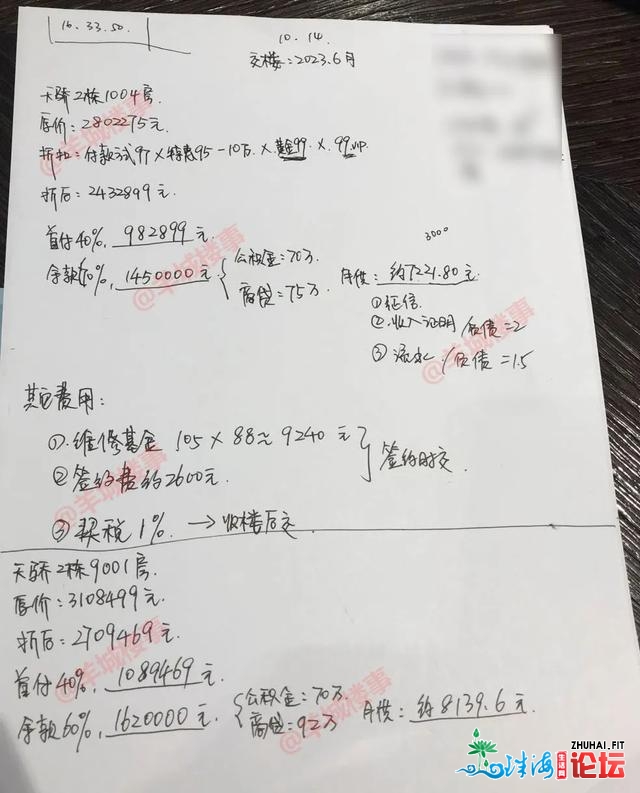 16. 33. 50.
10. 14.
交楼：2023.6月
天骄2栋1004房.
原价：2802275元.
折扣：付款方式97×特惠95-10万.×基金99.×.99.VIP.
折后：2432899元.
首付40%, 982899元.
余款60%, 1450000元 { 公积金：70万. 商贷：75万
3000
月供：约7221.80元.
①征信.
②.收入证明/负债=2
③流水/负债=1.5
其它费用：
①.维修基金 105×88≈9240元
②签约费约2600元.
签约时交.
③契税1%. →收楼后交
天骄2栋9001房.
原价：3108499元.
折后：2709469元.
首付40%, 1089469元.
余款60%, 1620000元. { 公积金：70万. 商贷：92万
月供：约8139.6元.
@羊城楼事
@羊城楼事
@羊城楼事
@羊城楼事
@羊城楼事
@羊城楼事
@羊城楼事
珠海
生活网
ZHUHAI.FIT
论坛